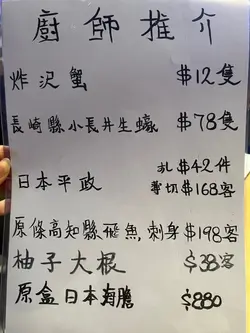 廚師推介
炸沢蟹 $12隻
長崎縣小長井生蠔 $78隻
扎 $42件
日本平政
薄切 $168客
原條高知縣飛魚,刺身 $198客
柚子大根 $38客
原盒日本海膽 $880